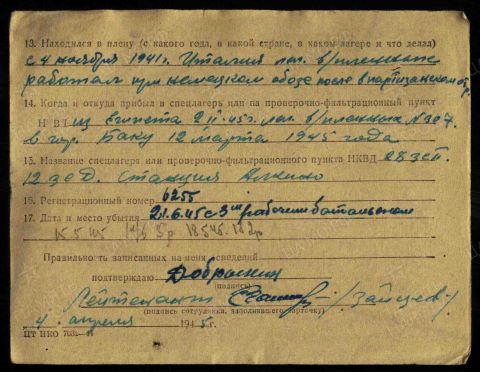 13. Находился в плену (с какого года, в какой стране, в каком лагере и что делал)
с 4 ноября 1941г. Италия лаг. в/пленных
работал при немецком обозе после в партизанском отр.
14. Когда и откуда прибыл в спецлагерь или на проверочно-фильтрационный пункт
НКВД из Египта 2 II-45г. лаг. в/пленных № 307.
в гор. Баку 12 марта 1945 года
15. Название спецлагеря или проверочно-фильтрационного пункта НКВД 28 зсп.
12 зсд. Станция Алкино
16. Регистрационный номер 6255
17. Дата и место убытия 21.6.45 с 3м рабочим батальоном
Правильность записанных на меня сведений
подтверждаю Добрынин
(подпись)
Лейтенант /Зайцев/
(подпись сотрудника, заполнявшего карточку)
4 апреля 1945г.
ЦТ НКО